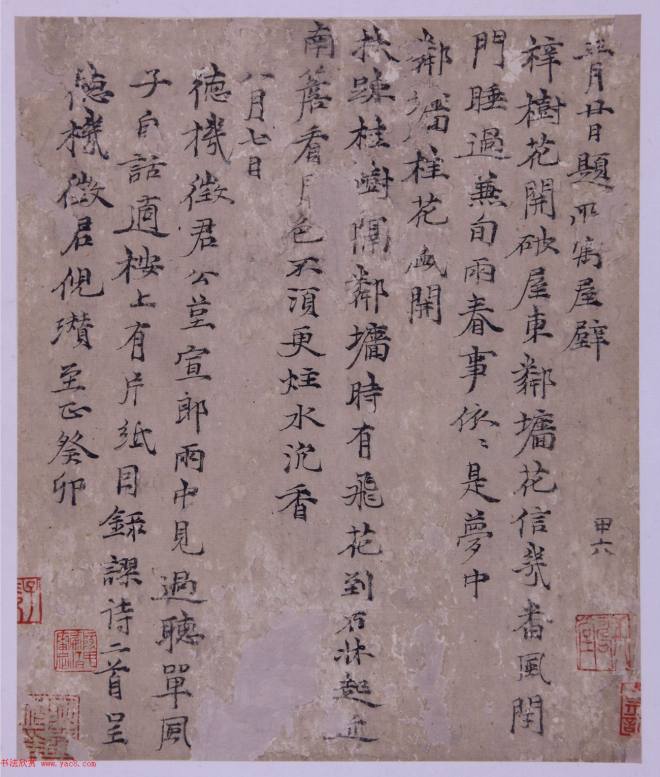 三月廿日題所寓屋壁
梓樹花開破屋東鄰墻花信幾番風閉
門睡過兼旬雨春事依〻是夢中
鄰墻桂花盛開
扶疎桂樹隔鄰墻時有飛花到石牀起近
南簷看月色不須更炷水沉香
八月七日
德機徵君公莖宣郎雨中見過聽單風
子自話適桉上有片紙因錄謬詩二首呈
德機徵君倪瓚至正癸卯
甲六
书法欣赏 www.yac8.com